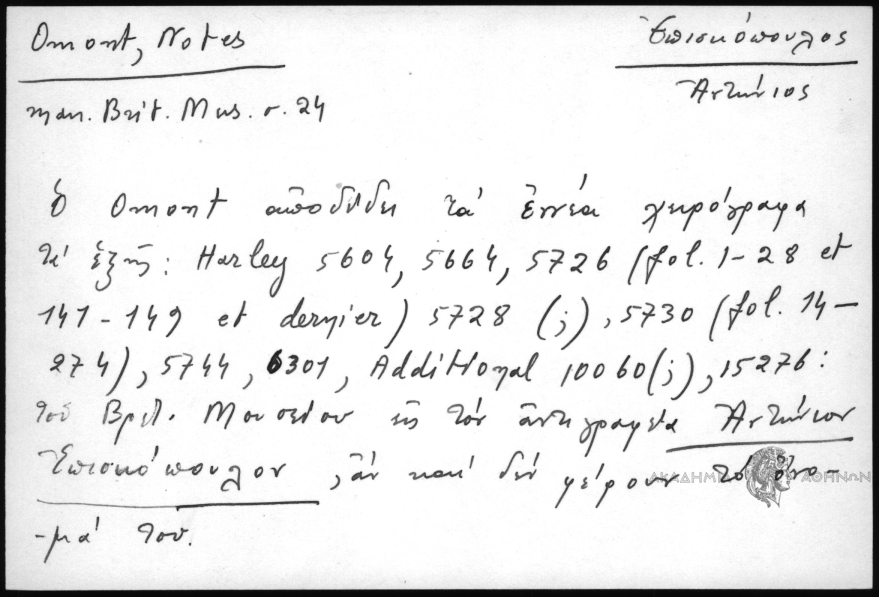 Omont, Notes
Ἐπισκόπουλος
man. Brit. Mus. σ. 24
Ἀντώνιος
Ὁ Omont ἀποδίδει τά ἐννέα χειρόγραφα
τά ἑξῆς: Harley 5604, 5664, 5726 (fol. 1-28 et
141-149 et dernier) 5728 (;), 5730 (fol. 14-
274), 5744, 6301, Additional 10060(;), 15276:
τοῦ Βρετ. Μουσείου εἰς τόν ἀντιγραφέα Ἀντώνιον
Ἐπισκόπουλον, ἄν καί δέν φέρουν τό ὄνο-
-μά του.
ΑΚΑΔΗΜΙΑ ΑΘΗΝΩΝ